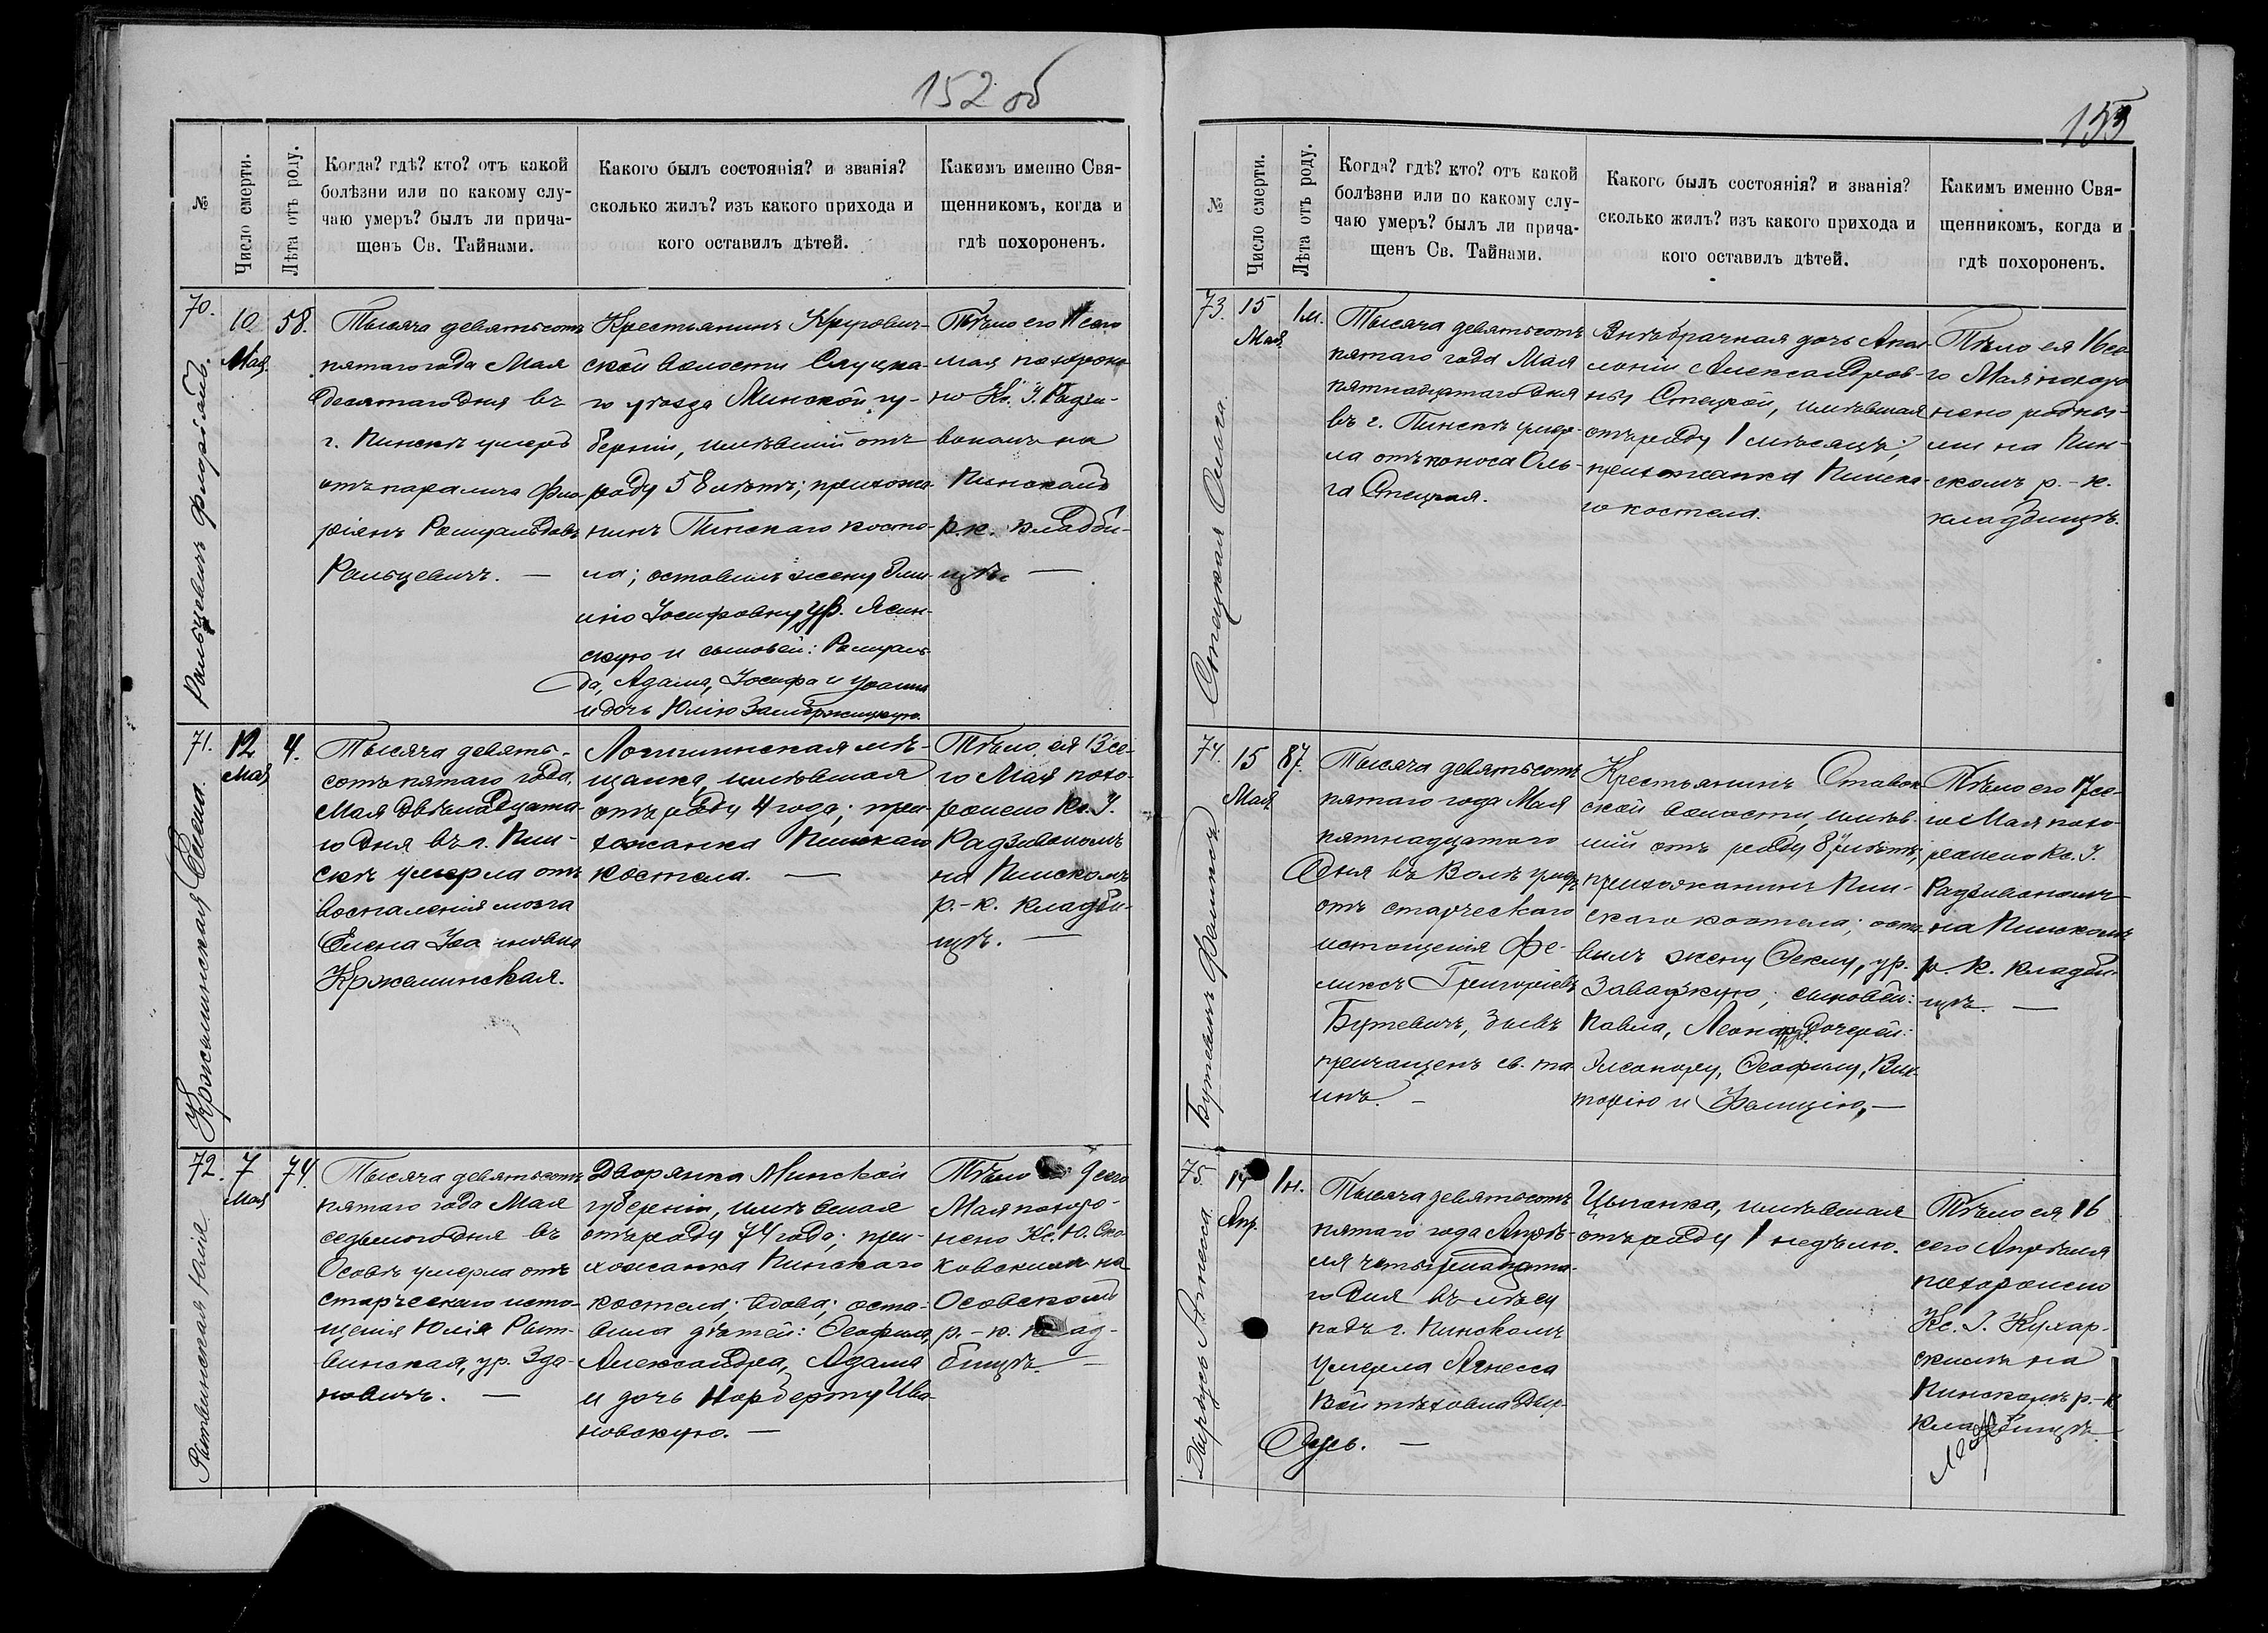 152 об
№
Число смерти.
Лѣта отъ роду.
Когда? гдѣ? кто? отъ какой
болѣзни или по какому слу-
чаю умеръ? былъ ли прича-
щенъ Св. Тайнами.
Какого былъ состоянія? и званія?
сколько жилъ? изъ какого прихода и
кого оставилъ дѣтей.
Какимъ именно Свя-
щенникомъ, когда и
гдѣ похороненъ.
70.
Рольцевичъ Флоріанъ.
10
Мая
58.
Тысяча девятьсотъ
пятаго года Мая
десятаго дня въ
г. Пинскѣ умеръ
отъ паралича Фло-
ріянъ Ромуальдовъ
Рольцевичъ. —
Крестьянинъ Кругович-
ской волости Слуцка-
го уѣзда Минской гу-
берніи, имѣвшій отъ
роду 58 лѣтъ; прихожа
нинъ Пинскаго косте-
ла; оставилъ жену Эми-
лію Іосифовну ур. Ясин-
скую и сыновей: Ромуаль-
да, Адама, Іосифа и Іоанна
и дочь Юлію
Тѣло его 11 сего
мая похороне
но Кс. І. Радзи-
вономъ на
Пинскомъ
р.-к. кладби-
щѣ. —
71.
Кржеминская Елена.
12
Мая
4.
Тысяча девять-
сотъ пятаго года
Мая двѣнадцата-
го дня въ г. Пин-
скѣ умерла отъ
воспаленія мозга
Елена Іоанновна
Кржеминская.
Логишинская мѣ-
щанка, имѣвшая
отъ роду 4 года; при-
хожанка Пинскаго
костела. —
Тѣло ея 13 се-
го Мая похо-
ронено Кс. І.
Радзивономъ
на Пинскомъ
р.-к. кладби-
щѣ. —
72.
Рытвинская Юлія
7
Мая
74.
Тысяча девятьсотъ
пятаго года Мая
седьмого дня въ
Осовѣ умерла отъ
старческаго исто-
щенія Юлія Рыт-
винская, ур. Зда-
новичъ. —
Дворянка Минской
губерніи, имѣвшая
отъ роду 74 года; при-
хожанка Пинскаго
костела; вдова; оста-
вила дѣтей: Ѳеофила,
Александра, Адама
и дочь Норберту Ива-
новскую. —
Тѣло 9 сего
Мая похоро-
нено Кс. Ю. Ско-
ковскимъ на
Осовскомъ
р.-к. клад-
бищѣ —
153
№
Число смерти.
Лѣта отъ роду.
Когда? гдѣ? кто? отъ какой
болѣзни или по какому слу-
чаю умеръ? былъ ли прича-
щенъ Св. Тайнами.
Какого былъ состоянія? и званія?
сколько жилъ? изъ какого прихода и
кого оставилъ дѣтей.
Какимъ именно Свя-
щенникомъ, когда и
гдѣ похороненъ.
73.
Стецкая Ольга.
15
Мая.
1м.
Тысяча девятьсотъ
пятаго года Мая
пятнадцатаго дня
въ г. Пинскѣ умер-
ла отъ поноса Оль-
га Стецкая.
Внѣбрачная дочь Апол-
лоніи Александров-
ны Стецкой, имѣвшая
отъ роду 1 мѣсяцъ;
прихожанка Пинска-
го костела.
Тѣло ея 16 се-
го Мая похоро
нено родны-
ми на Пин-
скомъ р.-к.
кладбищѣ.
74.
Бутевичъ Феликсъ.
15
Мая.
87.
Тысяча девятьсотъ
пятаго года Мая
пятнадцатаго
дня въ Волѣ умеръ
отъ старческаго
истощенія Фе-
ликсъ Григорьевъ
Бутевичъ, былъ
причащенъ св. та
инъ. —
Крестьянинъ Ставок-
ской волости, имѣв-
шій отъ роду 87 лѣтъ;
прихожанинъ Пин-
скаго костела; оста
вилъ жену Ѳеклу, ур.
Завадзкую; сыновей:
Павла, Леонарда, дочерей:
Элеонору, Ѳеофилу, Вик-
торію и Фелицію. —
Тѣло его 17 се-
го Мая похо-
ронено Кс. І.
Радзивономъ
на Пинскомъ
р. к. кладби-
щѣ. —
75.
Дырдусь Агнесса.
14
Апр.
1н.
Тысяча девятьсотъ
пятаго года Апрѣ-
ля четырнадцата-
го дня въ лѣсу
подъ г. Пинскомъ
умерла Агнесса
Войтѣховна Дыр-
дусь. —
Цыганка, имѣвшая
отъ роду 1 недѣлю.
Тѣло ея 16
сего Апрѣля
похоронено
Кс. І. Кухар-
скимъ на
Пинскомъ р.-к
кладбищѣ.